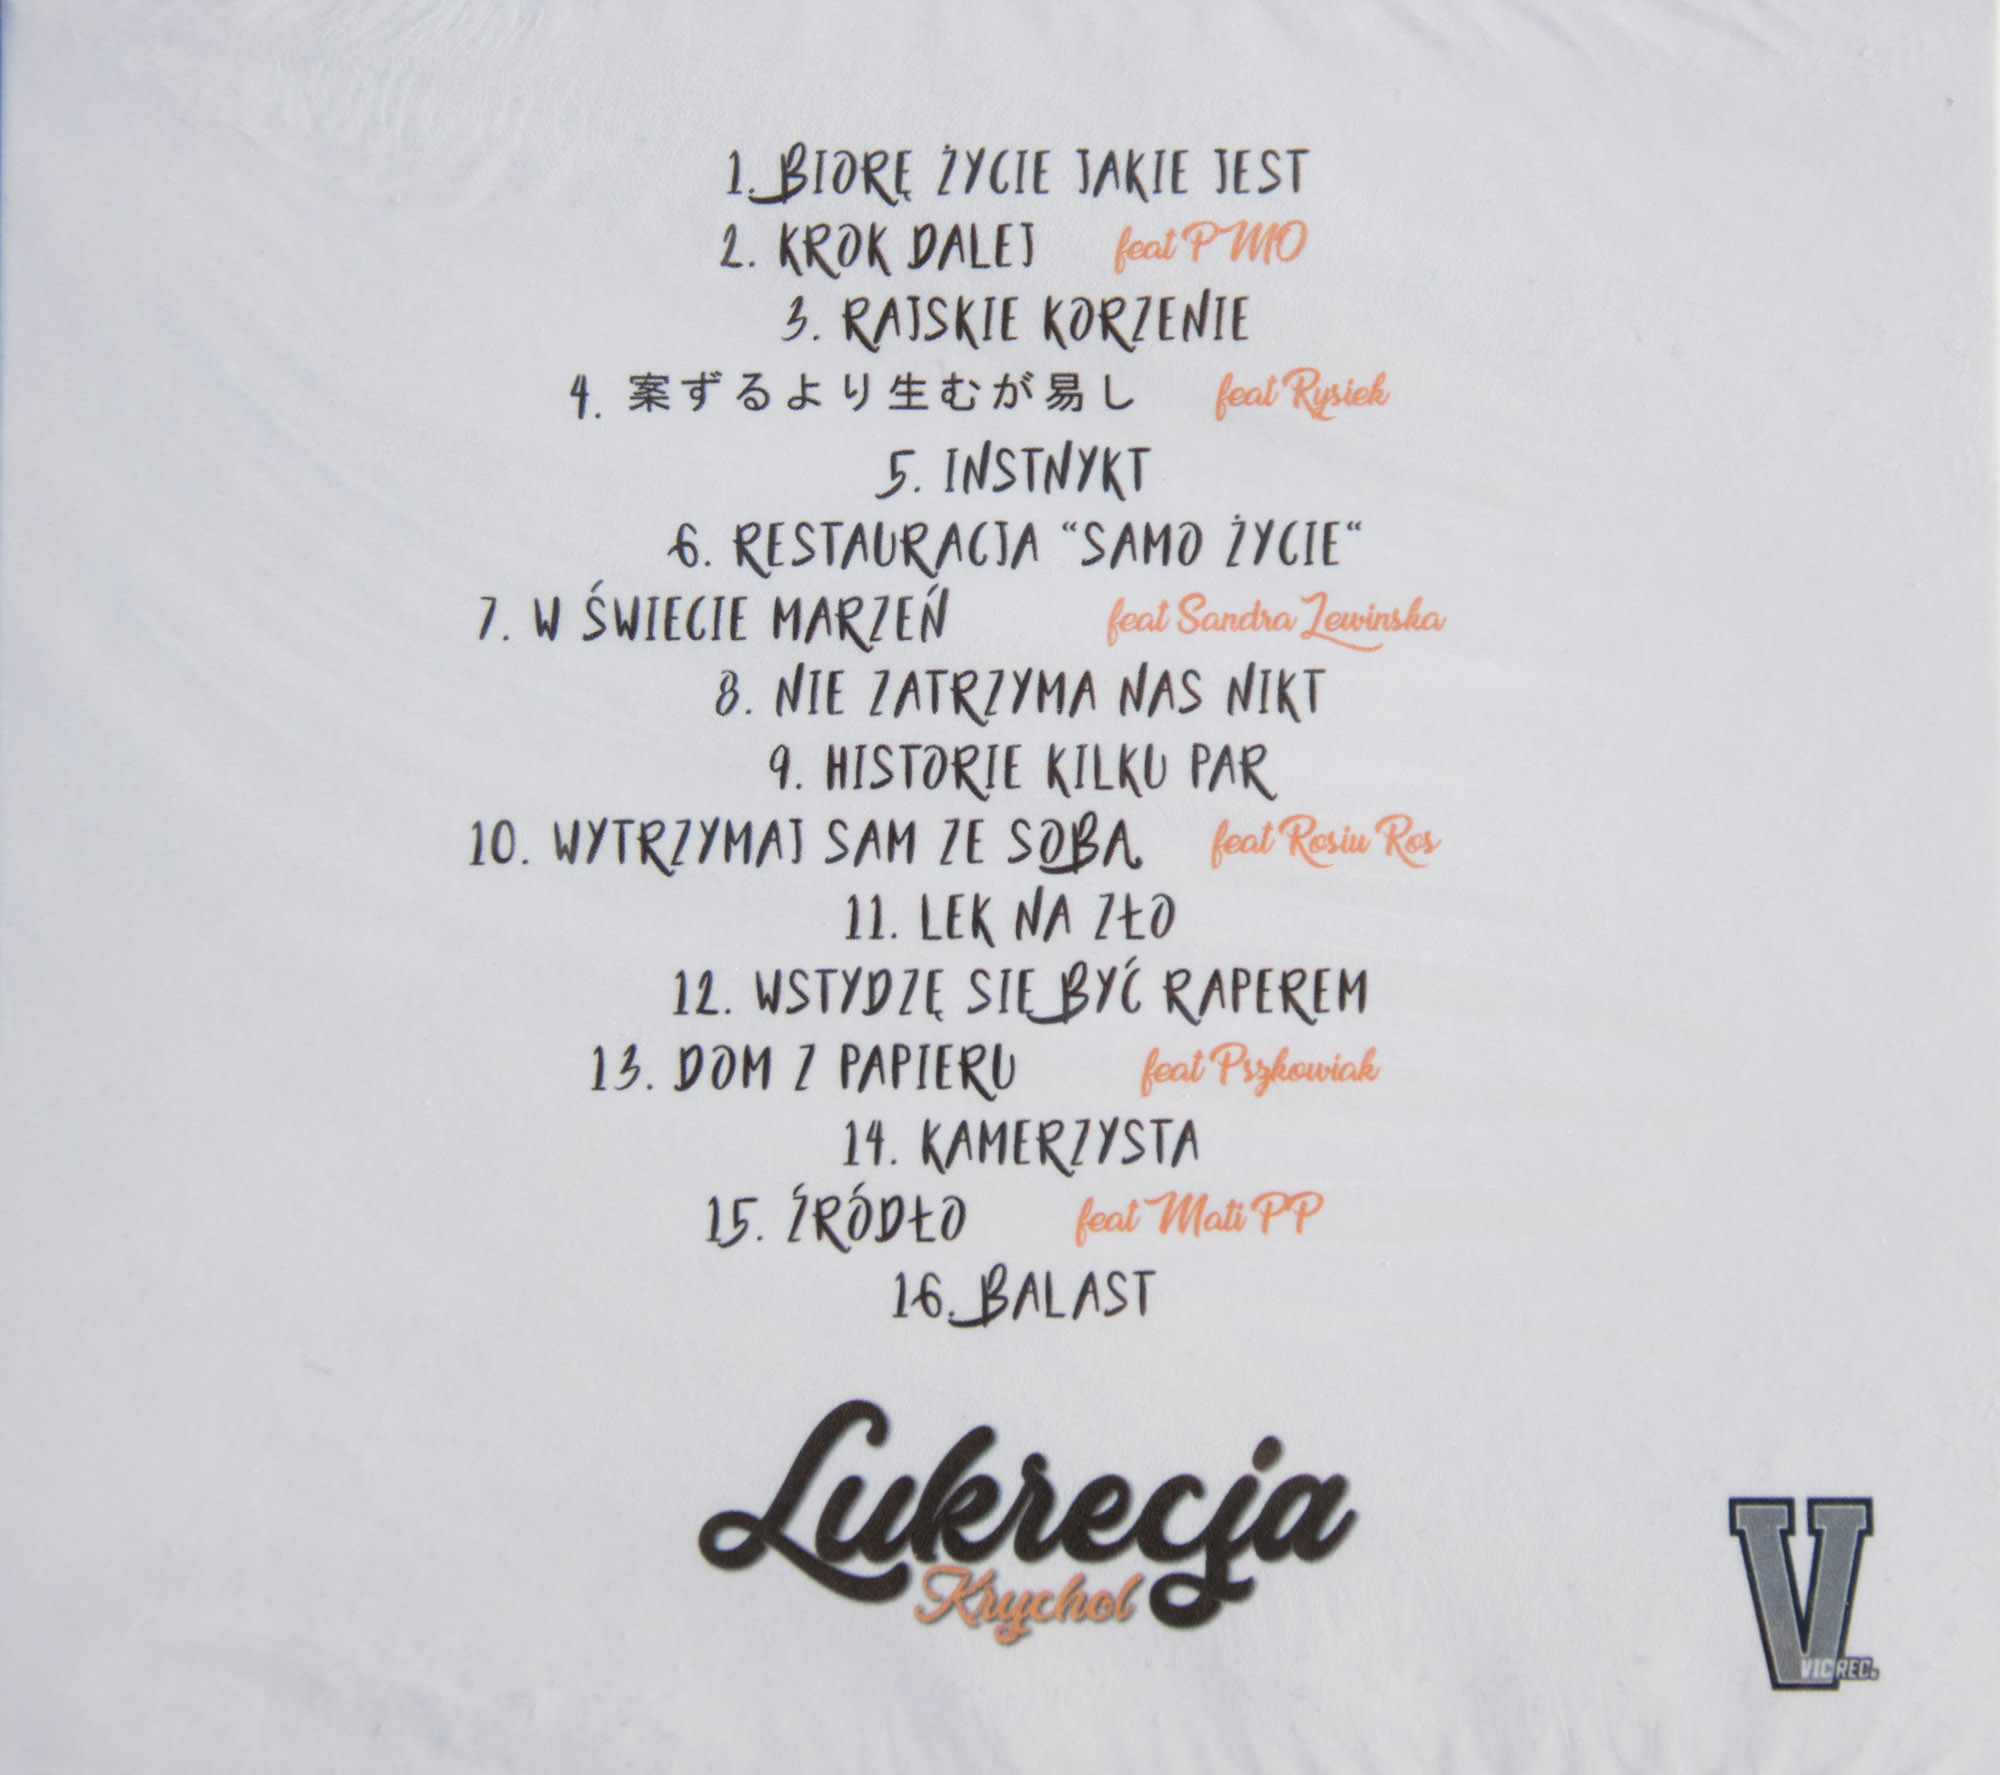 1. BIORĘ ŻYCIE JAKIE JEST
2. KROK DALEJ feat PMO
3. RAJSKIE KORZENIE
4. 案ずるより生むが易し feat Rysiek
5. INSTNYKT
6. RESTAURACJA “SAMO ŻYCIE“
7. W ŚWIECIE MARZEŃ feat Sandra Lewinska
8. NIE ZATRZYMA NAS NIKT
9. HISTORIE KILKU PAR
10. WYTRZYMAJ SAM ZE SOBĄ feat Rosiu Ros
11. LEK NA ZŁO
12. WSTYDZĘ SIĘ BYĆ RAPEREM
13. DOM Z PAPIERU feat Pszkowiak
14. KAMERZYSTA
15. ŹRÓDŁO feat Mati PP
16. BALAST
Lukrecja
Krychol
V
VIC REC.